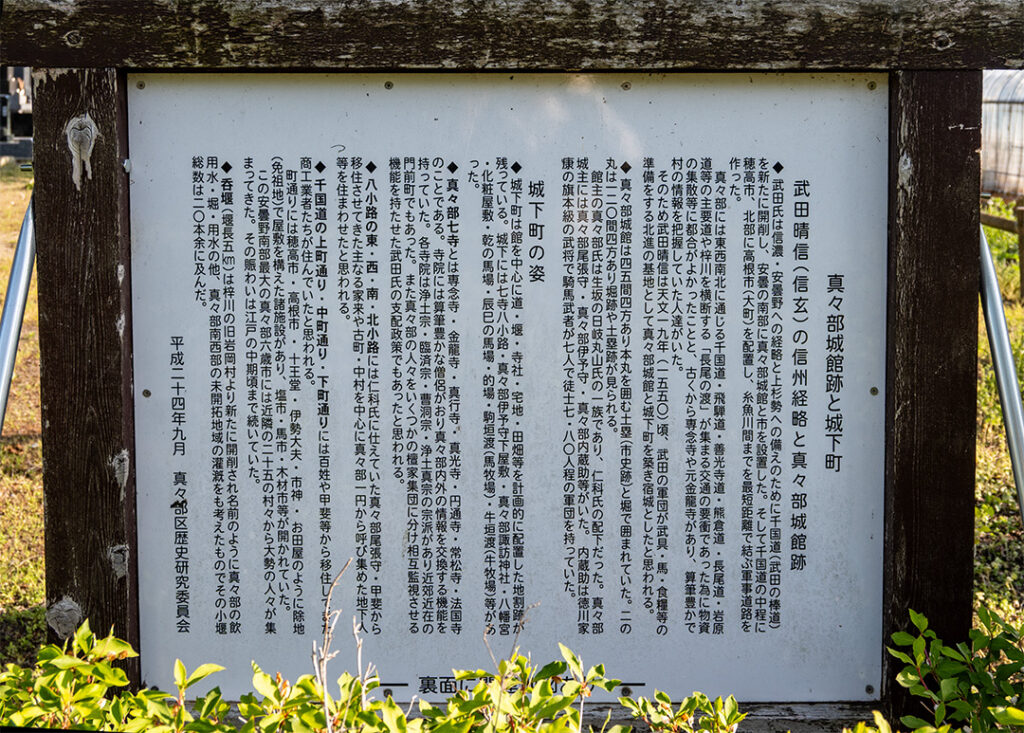 真々部城館跡と城下町
武田晴信(信玄)の信州経略と真々部城館跡
◆武田氏は信濃・安曇野への経略と上杉勢への備えのために千国道(武田の棒道)
を新たに開削し、安曇の南部に真々部城館と市を設置した。そして千国道の中程に
穂高市、北部に高根市(大町)を配置し、糸魚川間までを最短距離で結ぶ軍事道路を
作った。
真々部には東西南北に通じる千国道・飛騨道・善光寺道・熊倉道・長尾道・岩原
道等の主要道や梓川を横断する「長尾の渡」が集まる交通の要衝であった為に物資
の集散等にも都合がよかったことと、古くから専念寺や元金龍寺があり、算筆豊かで
村の情報を把握していた人達がいた。
そのため武田晴信は天文一九年(一五五〇)頃、武田の軍団が武具・馬・食糧等の
準備をする北進の基地として真々部城館と城下町を築き宿城としたと思われる。
◆真々部城館は四五間四方あり本丸を囲む土塁(市史跡)と堀で囲まれていた。二の
丸は一二〇間四方あり堀跡や土塁跡が見られる。
館主の真々部氏は生坂の日岐丸山氏の一族であり、仁科氏の配下だった。真々部
城主には真々部尾張守・真々部伊予守・真々部内蔵助等がいた。内蔵助は徳川家
康の旗本級の武将で騎馬武者が七人で徒士七・八〇人程の軍団を持っていた。
城下町の姿
◆城下町は館を中心に道・堰・寺社・宅地・田畑等を計画的に配置した地割跡が
残っている。城下には七寺八小路・真々部伊予守下屋敷・真々部諏訪神社・八幡宮
・化粧屋敷・乾の馬場・辰巳の馬場・的場・駒垣渡(馬牧場)・牛垣渡(牛牧場)等があ
った。
◆真々部七寺とは専念寺・金龍寺・真行寺・真光寺・円通寺・常松寺・法国寺
のことである。寺院には算筆豊かな僧侶がおり真々部内外の情報を交換する機能を
持っていた。各寺院は浄土宗・臨済宗・曹洞宗・浄土真宗の宗派があり近郊近在の
門前町でもあった。また真々部の人々をいくつかの檀家集団に分け相互監視させる
機能を持たせた武田氏の支配政策でもあったと思われる。
◆八小路の東・西・南・北小路には仁科氏に仕えていた真々部尾張守・甲斐から
移住させてきた主なる家来や古町・中村を中心に真々部一円から呼び集めた地下
等を住まわせたと思われる。
◆千国道の上町通り・中町通り・下町通りには百姓や甲斐等から移住し
商工業者たちが住んでいたと思われる。
町通りには穂高市・高根市・十王堂・伊勢大夫・市神・お田屋のように除地
(免祖地)で屋敷を構えた諸施設があり、塩市・馬市・木材市等が開かれていた。
この安曇野南部最大の真々部六歳市には近隣の二十五の村々から大勢の人々が集
まってきた。その賑わいは江戸の中期頃まで続いていた。
◆呑堰(堰長五㎞)は梓川の旧岩岡村より新たに開削され名前のように真々部の飲
用水・堀・用水の他、真々部南西部の未開拓地域の灌漑をも考えたものでその小堰
総数は二〇本余に及んだ。
平成二十四年九月 真々部区歴史研究委員会
裏面に